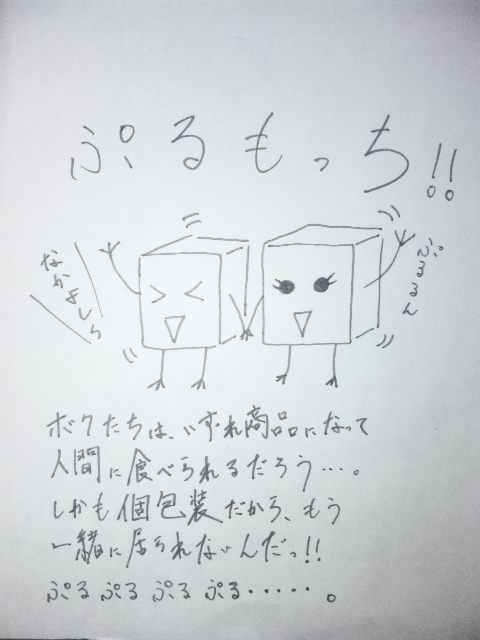 ぷるもっち!!
なかよしら
ぶるるん
ボクたちは、いずれ商品になって
人間に食べられるだろう…。
しかも個包装だから、もう
一緒に居られないんだっ!!
ぷるぷるぷるぷる……。